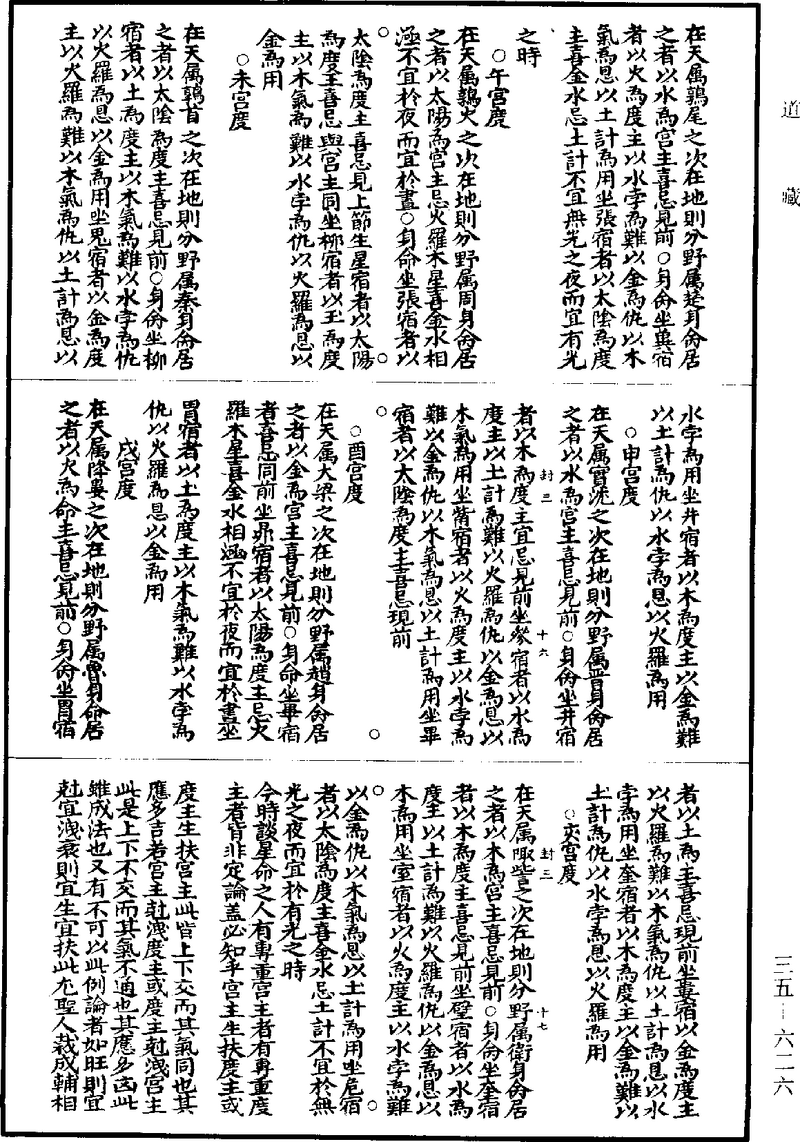 道藏
在天属鶉尾之次在地則分野属楚身命居
之者以水為宮主喜忌見前○身命坐翼宿
者以火為度主以水孛為難以金為仇以木
氣為恩以土計為用坐張宿者以太陰為度
主喜金水忌土計不宜無光之夜而宜有光
之時
○午宮度
在天属鶉火之次在地則分野属周身命居
之者以太陽為宮主忌火羅木星喜金水相
涵不宜於夜而宜於晝○身命坐張宿者以
太陰為度主喜忌見上節生星宿者以太陽
為度主喜忌與宮主同坐柳宿者以土為度
主以木氣為難以水孛為仇以火羅為恩以
金為用
○未宮度
在天属鶉首之次在地則分野属秦身命居
之者以太陰為度主喜忌見前○身命坐柳
宿者以土為度主以木氣為難以水孛為仇
以火羅為恩以金為用坐鬼宿者以金為度
主以火羅為難以木氣為仇以土計為恩以
水孛為用坐井宿者以木為度主以金為難
以土計為仇以水孛為恩以火羅為用
○申宮度
在天属實沈之次在地則分野属晋身命居
之者以水為宮主喜忌見前○身命坐井宿
者以木為度主宜忌見前坐參宿者以水為
度主以土計為難以火羅為仇以金為恩以
木氣為用坐觜宿者以火為度主以水孛為
難以金為仇以木氣為恩以土計為用坐畢
宿者以太陰為度主喜忌現前
○酉宮度
在天属大梁之次在地則分野属趙身命居
之者以金為宮主喜忌見前○身命坐畢宿
者喜忌同前坐昴宿者以太陽為度主忌火
羅木星喜金水相涵不宜於夜而宜於晝坐
胃宿者以土為度主以木氣為難以水孛為
仇以火羅為恩以金為用
戌宮度
在天属降婁之次在地則分野属魯身命居
之者以火為命主喜忌見前○身命坐胃宿
者以土為主喜忌現前坐婁宿以金為度主
以火羅為難以木氣為仇以土計為恩以水
孛為用坐奎宿者以木為度主以金為難以
土計為仇以水孛為恩以火羅為用
○亥宮度
在天属陬訾之次在地則分野属衛身命居
之者以木為宮主喜忌見前○身命坐奎宿
者以木為度主喜忌見前坐壁宿者以水為
度主以土計為難以火羅為仇以金為恩以
木為用坐室宿者以火為度主以水孛為難
以金為仇以木氣為恩以土計為用坐危宿
者以太陰為度主喜金水忌土計不宜於無
光之夜而宜於有光之時
今時談星命之人有專重宮主者有專重度
主者皆非定論盖必知乎宮主生扶度主或
度主生扶宮主此皆上下交而其氣同也其
應多吉若宮主尅洩度主或度主尅洩宮主
此是上下不交而其氣不通也其應多凶此
雖成法也又有不可以此例論者如旺則宜
尅宜洩衰則宜生宜扶此尤聖人裁成輔相
封三
十六
封三
十七
三五-六二六